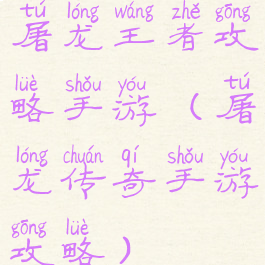 tú lóng wáng zhě gōng
屠龙王者攻
lüè shǒu yóu tú
略手游（屠
lóng chuán qí shǒu yóu
龙传奇手游
gōng lüè
攻略）